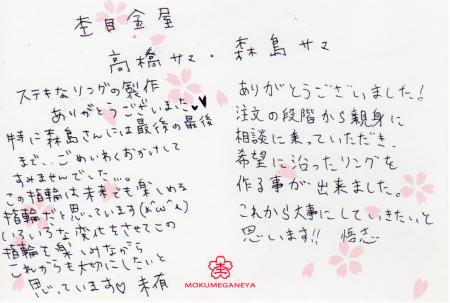 杢目金屋
高橋サマ・森島サマ
ステキなリングの製作
ありがとうございました♥♥
特に森島さんには最後の最後
まで、ごめいわくおかけして
すみませんでした…。
この指輪は未来でも楽しめる
指輪だと思っています(k^ω^*)
いろいろな変化もさせてこの
指輪を楽しめながら
これからも大切にしたいと
思っています♡ 未有
ありがとうございました!
注文の段階から親身に
相談に乗っていただき、
希望に沿ったリングを
作る事が出来ました。
これから大事にしていきたいと
思います!! 悟志
MOKUMEGANEYA